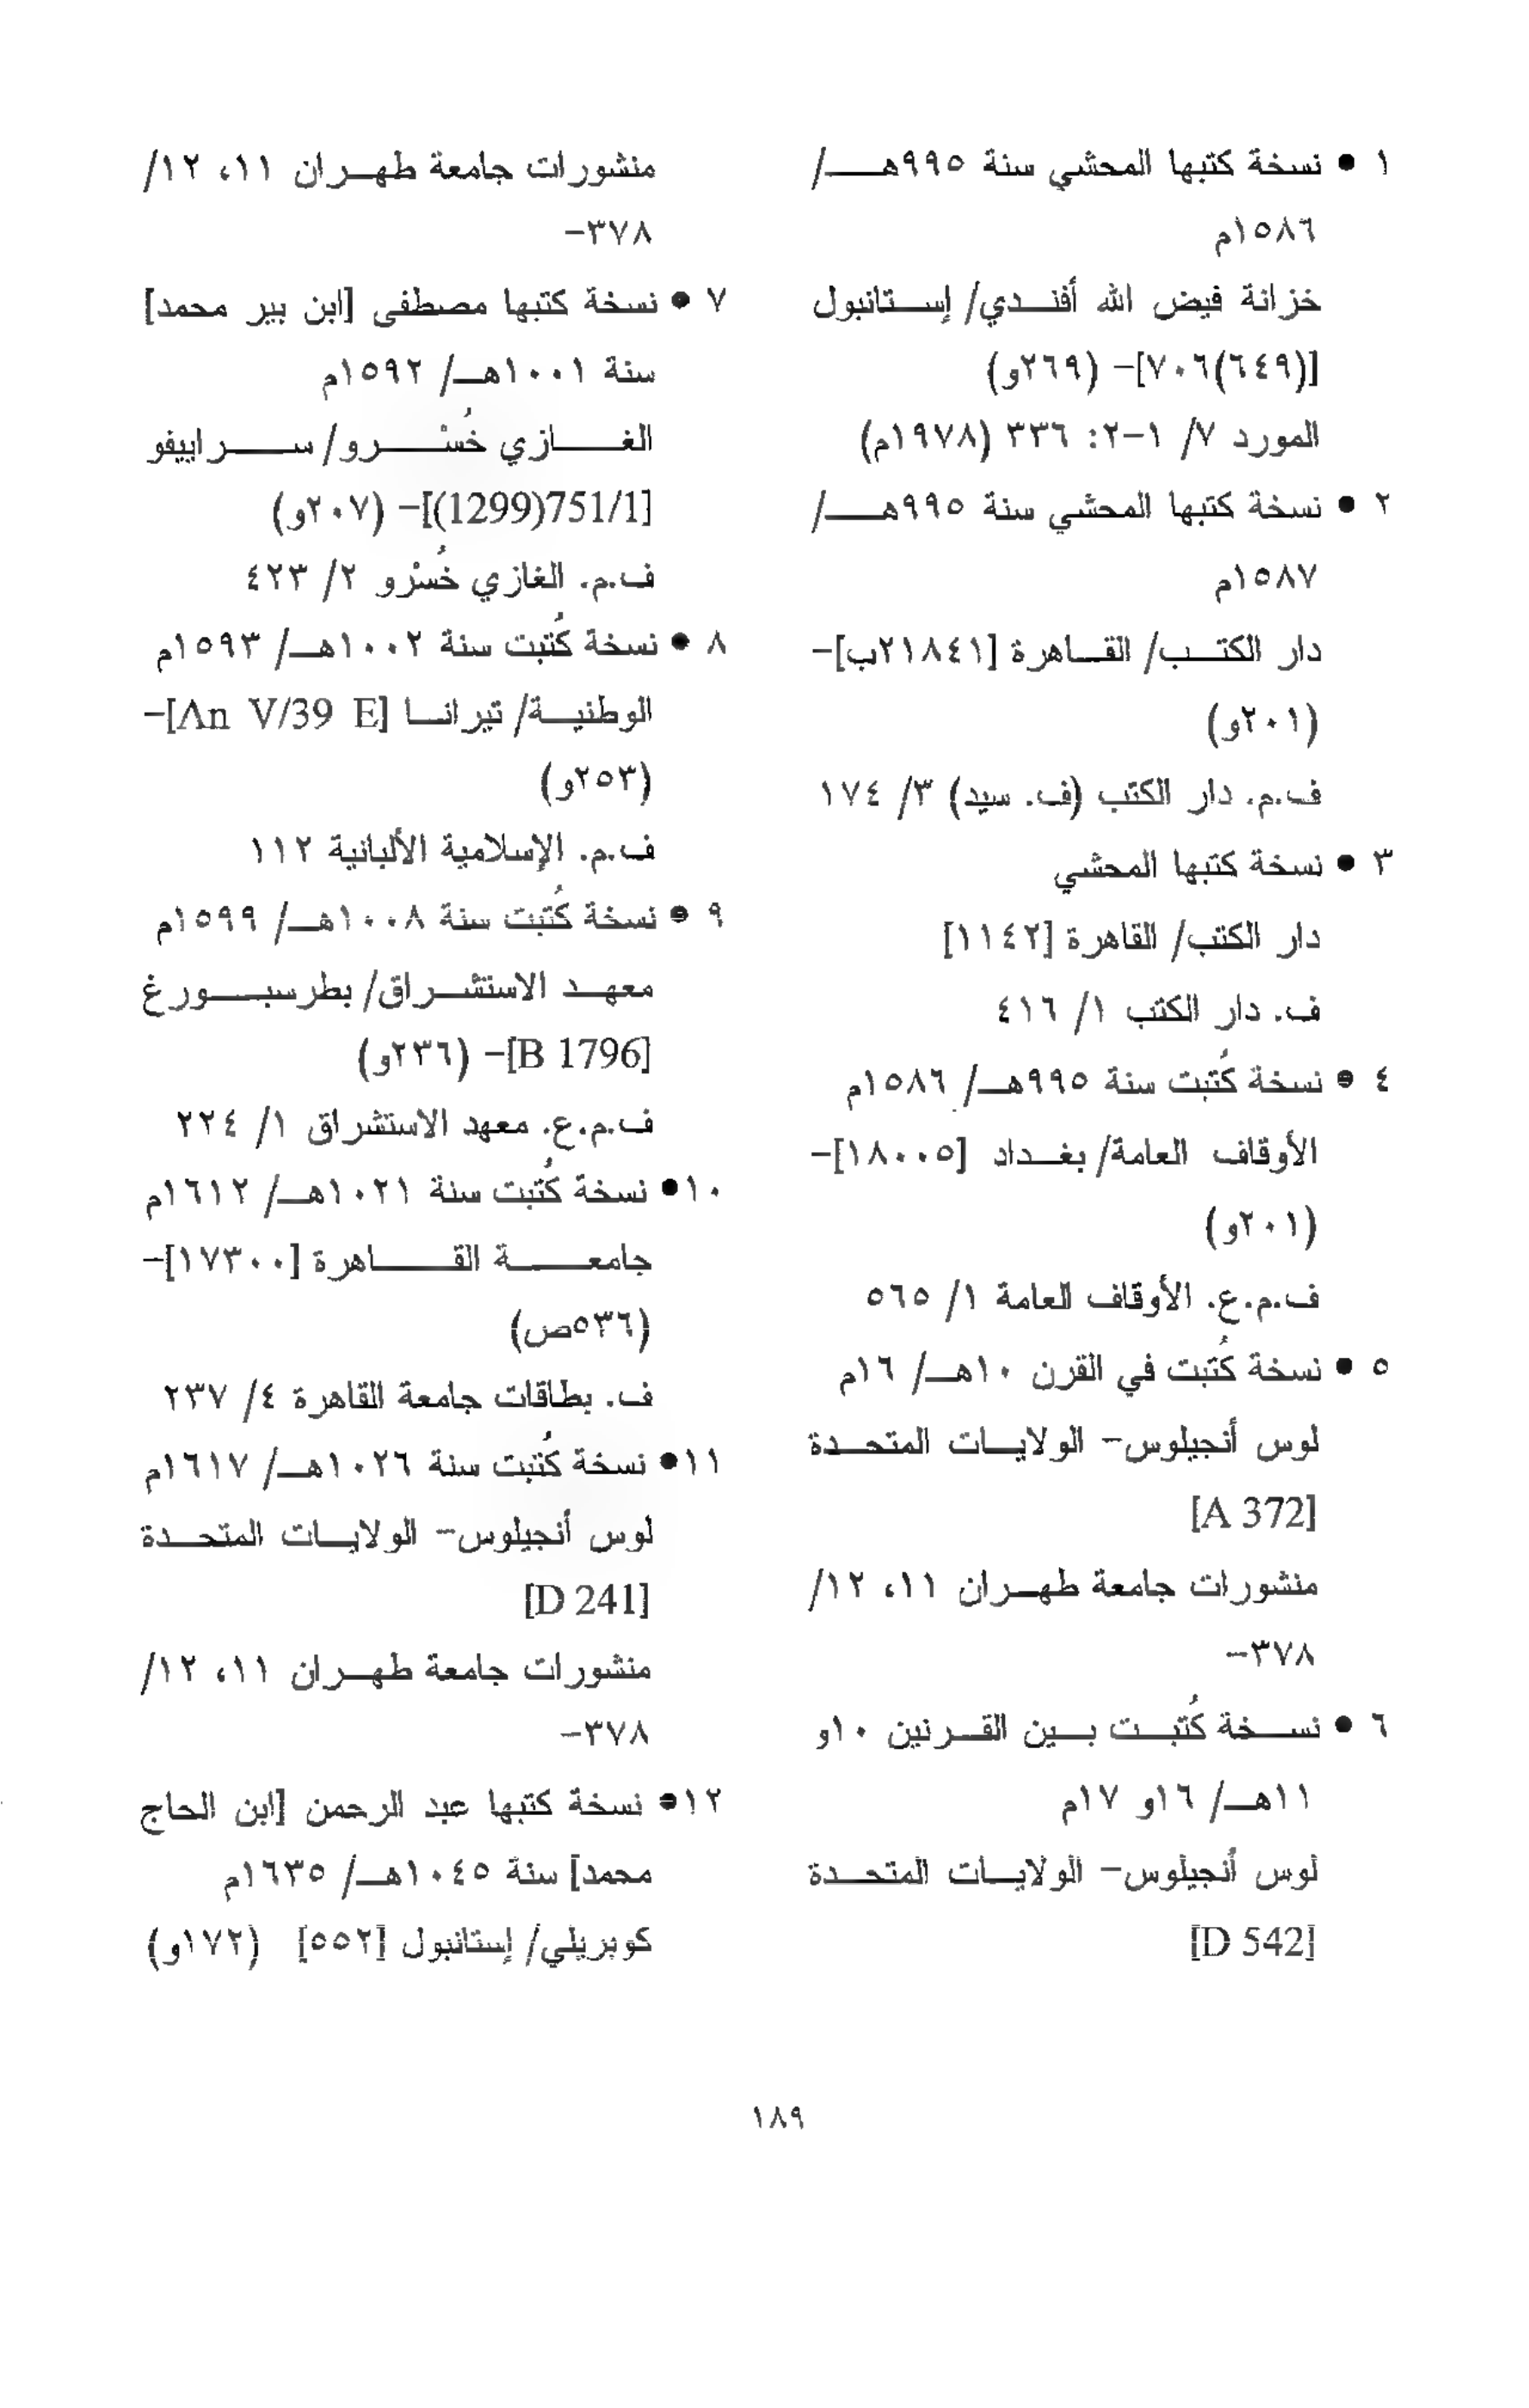 ١ • نسخة كتبها المحشي سنة ٩٩٥هـ/
١٥٨٦م
خزانة فيض الله أفندي/ إستانبول
[(٦٤٩)٧٠٦]- (٢٦٩و)
المورد ٧/ ١-٢: ٣٣٦ (١٩٧٨م)
٢ • نسخة كتبها المحشي سنة ٩٩٥هـ/
١٥٨٧م
دار الكتب/ القاهرة [٢١٨٤١ب]-
(٢٠١و)
ف.م. دار الكتب (ف. سيد) ٣/ ١٧٤
٣ • نسخة كتبها المحشي
دار الكتب/ القاهرة [١١٤٢]
ف. دار الكتب ١/ ٤١٦
٤ • نسخة كُتبت سنة ٩٩٥هـ/ ١٥٨٦م
الأوقاف العامة/ بغداد [١٨٠٠٥]-
(٢٠١و)
ف.م.ع. الأوقاف العامة ١/ ٥٦٥
٥ • نسخة كُتبت في القرن ١٠هـ/ ١٦م
لوس أنجيلوس- الولايات المتحدة
[A 372]
منشورات جامعة طهران ١١، ١٢/
٣٧٨-
٦ • نسخة كُتبت بين القرنين ١٠و
١١هـ/ ١٦و ١٧م
لوس أنجيلوس- الولايات المتحدة
[D 542]
منشورات جامعة طهران ١١، ١٢/
٣٧٨-
٧ • نسخة كتبها مصطفى [ابن بير محمد]
سنة ١٠٠١هـ/ ١٥٩٢م
الغازي خُسْرو/ سراييفو
[(1299)751/1]- (٢٠٧و)
ف.م. الغازي خُسْرو ٢/ ٤٢٣
٨ • نسخة كُتبت سنة ١٠٠٢هـ/ ١٥٩٣م
الوطنية/ تيرانا [An V/39 E]-
(٢٥٣و)
ف.م. الإسلامية الألبانية ١١٢
٩ • نسخة كُتبت سنة ١٠٠٨هـ/ ١٥٩٩م
معهد الاستشراق/ بطرسبورغ
[B 1796]- (٢٣٦و)
ف.م.ع. معهد الاستشراق ١/ ٢٢٤
١٠• نسخة كُتبت سنة ١٠٢١هـ/ ١٦١٢م
جامعة القاهرة [١٧٣٠٠]-
(٥٣٦ص)
ف. بطاقات جامعة القاهرة ٤/ ٢٣٧
١١• نسخة كُتبت سنة ١٠٢٦هـ/ ١٦١٧م
لوس أنجيلوس- الولايات المتحدة
[D 241]
منشورات جامعة طهران ١١، ١٢/
٣٧٨-
١٢• نسخة كتبها عبد الرحمن [ابن الحاج
محمد] سنة ١٠٤٥هـ/ ١٦٣٥م
كوبريلي/ إستانبول [٥٥٢] (١٧٢و)
١٨٩